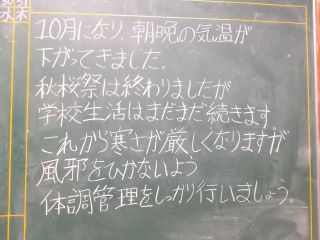 30 31
水 木
10月になり、朝晩の気温が
下がってきました。
秋桜祭は終わりましたが
学校生活はまだまだ続きます。
これから寒さが厳しくなりますが
風邪をひかないよう
体調管理をしっかり行いましょう。